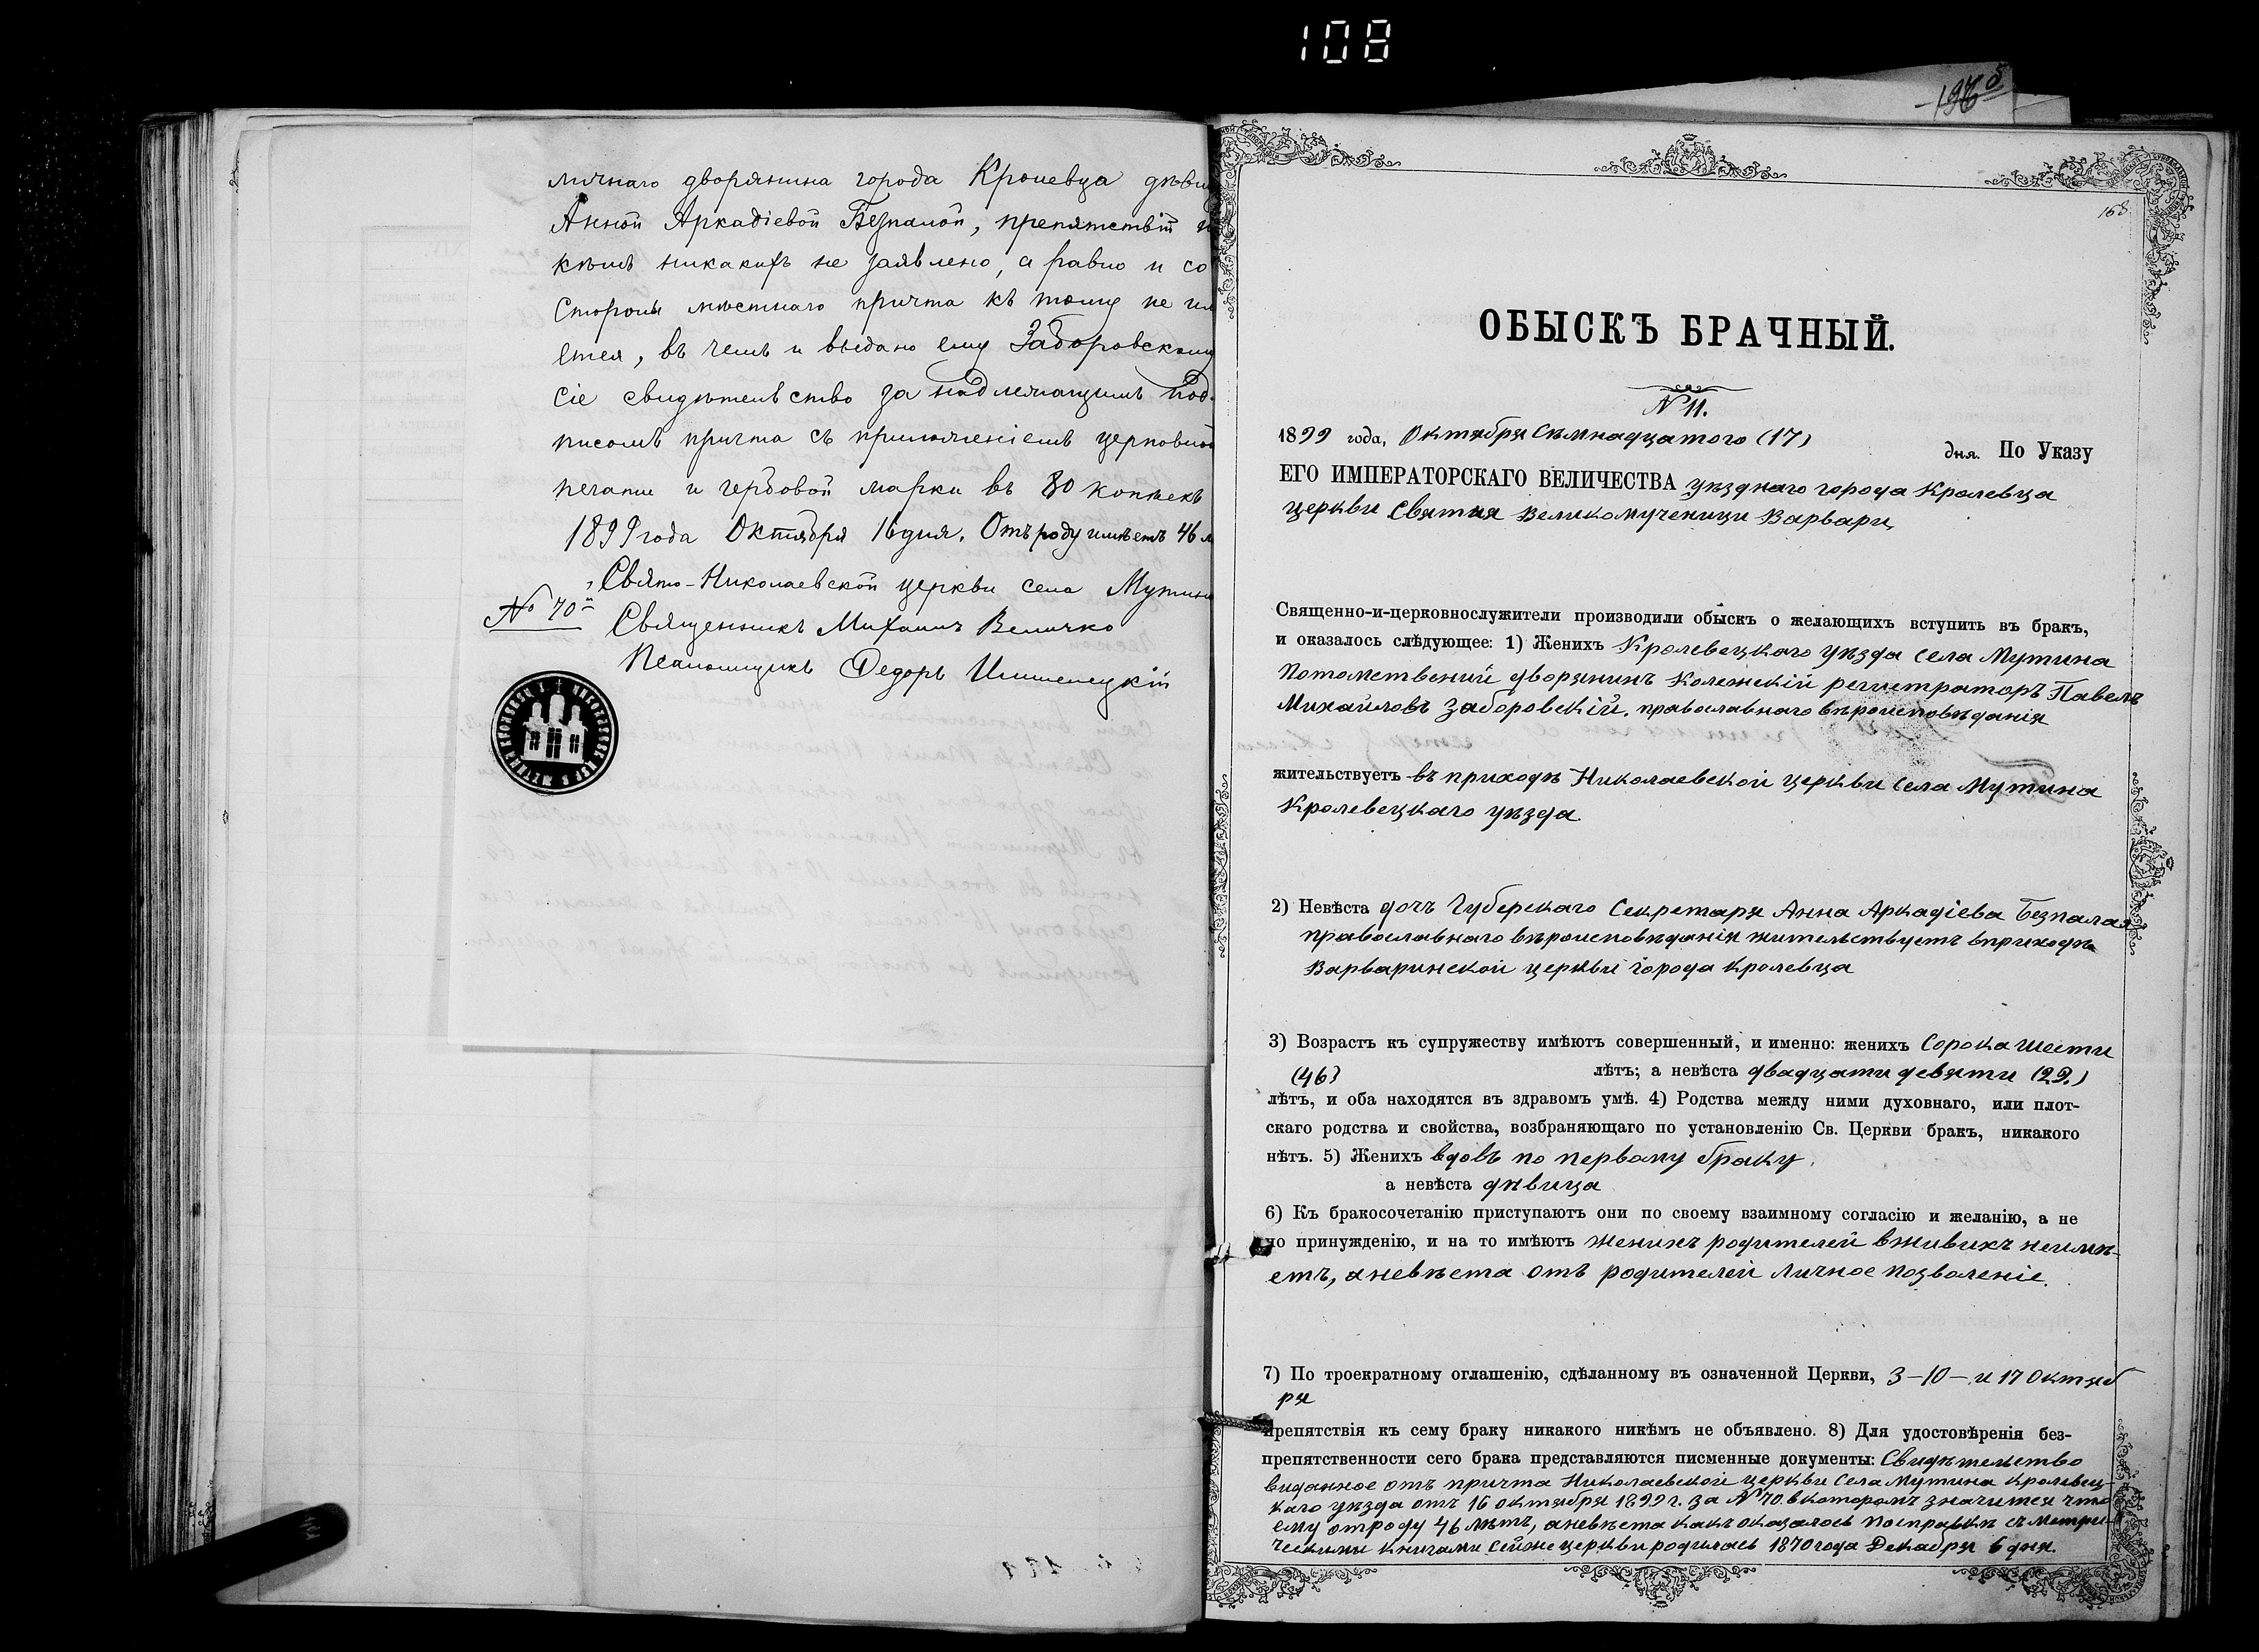 108
личнаго дворянина города Кролевца
Анной Аркадіевой Безпалой, препятствій
кѣмъ никакихъ не заявлено, а равно и со
стороны мѣстнаго причта къ тому не им
ется, въ чемъ и выдано ему Заборовскому
сіе свидѣтельство за надлежащимъ под-
писомъ причта съ приложеніемъ церковной
печати и гербовой марки въ 80 копѣекъ
1899 года Октября 16 дня. Отъ роду имѣетъ 46 л
Свято-Николаевской церкви села Мутина
№ 70й
Священникъ Михаилъ Величко
Псаломщикъ Федоръ
168
ОБЫСКЪ БРАЧНЫЙ.
№ 11.
1899 года, Октября Семнадцатого (17) дня. По Указу
ЕГО ИМПЕРАТОРСКАГО ВЕЛИЧЕСТВА уѣзднаго города Кролевца
церкви Святыя Великомученици Варвары
Священно-и-церковнослужители производили обыскъ о желающихъ вступить въ бракъ,
и оказалось слѣдующее: 1) Женихъ Кролевецкаго уѣзда села Мутина
Потомственій дворянинъ Колежскій регистраторъ Павелъ
Михайловъ Заборовскій. православнаго вѣроисповѣданія
жительствуетъ въ приходѣ Николаевской церкви села Мутина
Кролевецкаго уѣзда
2) Невѣста дочъ Губерскаго Секретаря Анна Аркадіева Безпалая
православнаго вѣроисповѣданія жительствуетъ вприходѣ
Варваринской церкви города Кролевца
3) Возрастъ къ супружеству имѣютъ совершенный, и именно: женихъ Сорока шести
(46) лѣтъ; а невѣста двадцати девяти (29.)
лѣтъ, и оба находятся въ здравомъ умѣ. 4) Родства между ними духовнаго, или плот-
скаго родства и свойства, возбраняющаго по установленію Св. Церкви бракъ, никакого
нѣтъ. 5) Женихъ вдовъ по первому браку,
а невѣста дѣвица
6) Къ бракосочетанію приступаютъ они по своему взаимному согласію и желанію, а не
по принужденію, и на то имѣютъ женихъ родителей вживихъ неимѣ-
етъ, аневѣста отъ родителей личное позволеніе.
7) По троекратному оглашенію, сдѣланному въ означенной Церкви, 3-10- и 17 Октяб
ря
препятствія къ сему браку никакого никѣмъ не объявлено. 8) Для удостовѣренія без-
препятственности сего брака представляются писменные документы: Свидѣтельство
виданное отъ причта Николаевской церкви Села Мутина Кролевец-
каго уѣзда отъ 16 октября 1899 г. за № 70. вкоторомъ значится что
ему отроду 46 лѣтъ, аневѣста какъ оказалось посправкѣ съ метри-
ческими книгами сейже церкви родилась 1870 года Декабря 6 дня.